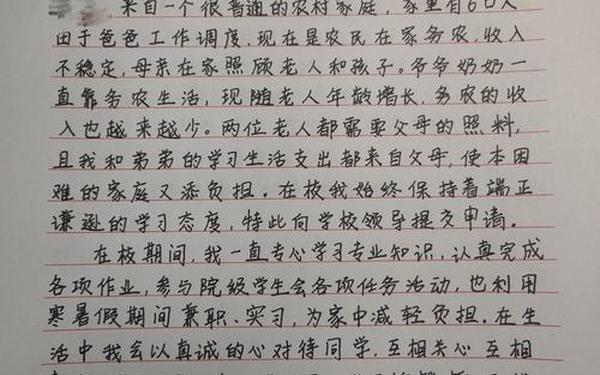 来自一个很普通的农村家庭，家里有6口人
由于爸爸工作调度，现在是农民在家务农，收入
不稳定，母亲在家照顾老人和孩子。爷爷奶奶一
直靠务农生活，现随老人年龄增长，务农的收
入也越来越少。两位老人都需要父母的照料，
且我和弟弟的学习生活支出都来自父母，使本困
难的家庭又添负担。在校我始终保持着端正
谦逊的学习态度，特此向学校领导提交申请。
在校期间，我一直专心学习专业知识，认真完成
各项作业，参与院级学生会各项任务活动，也利用
寒暑假期间兼职、实习，为家中减轻负担。在生
活中我会以真诚的心对待同学，互相关心互相